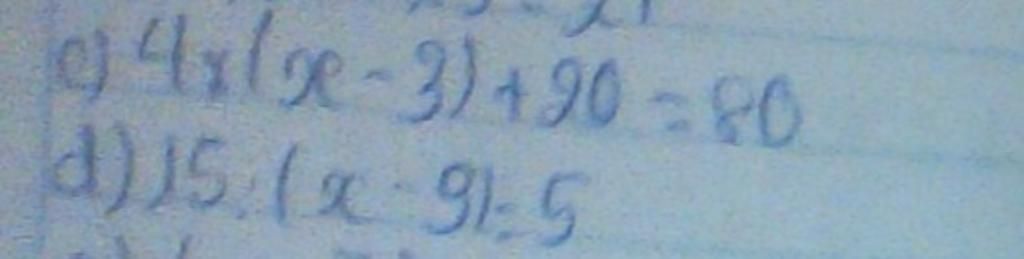 c) 4x(x-3)+20=80
d) 15:(x-9)=5